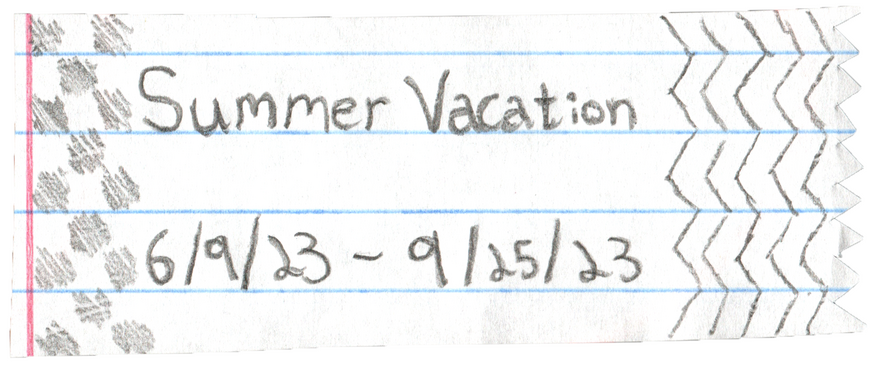 Summer Vacation
6/9/23 - 9/25/23